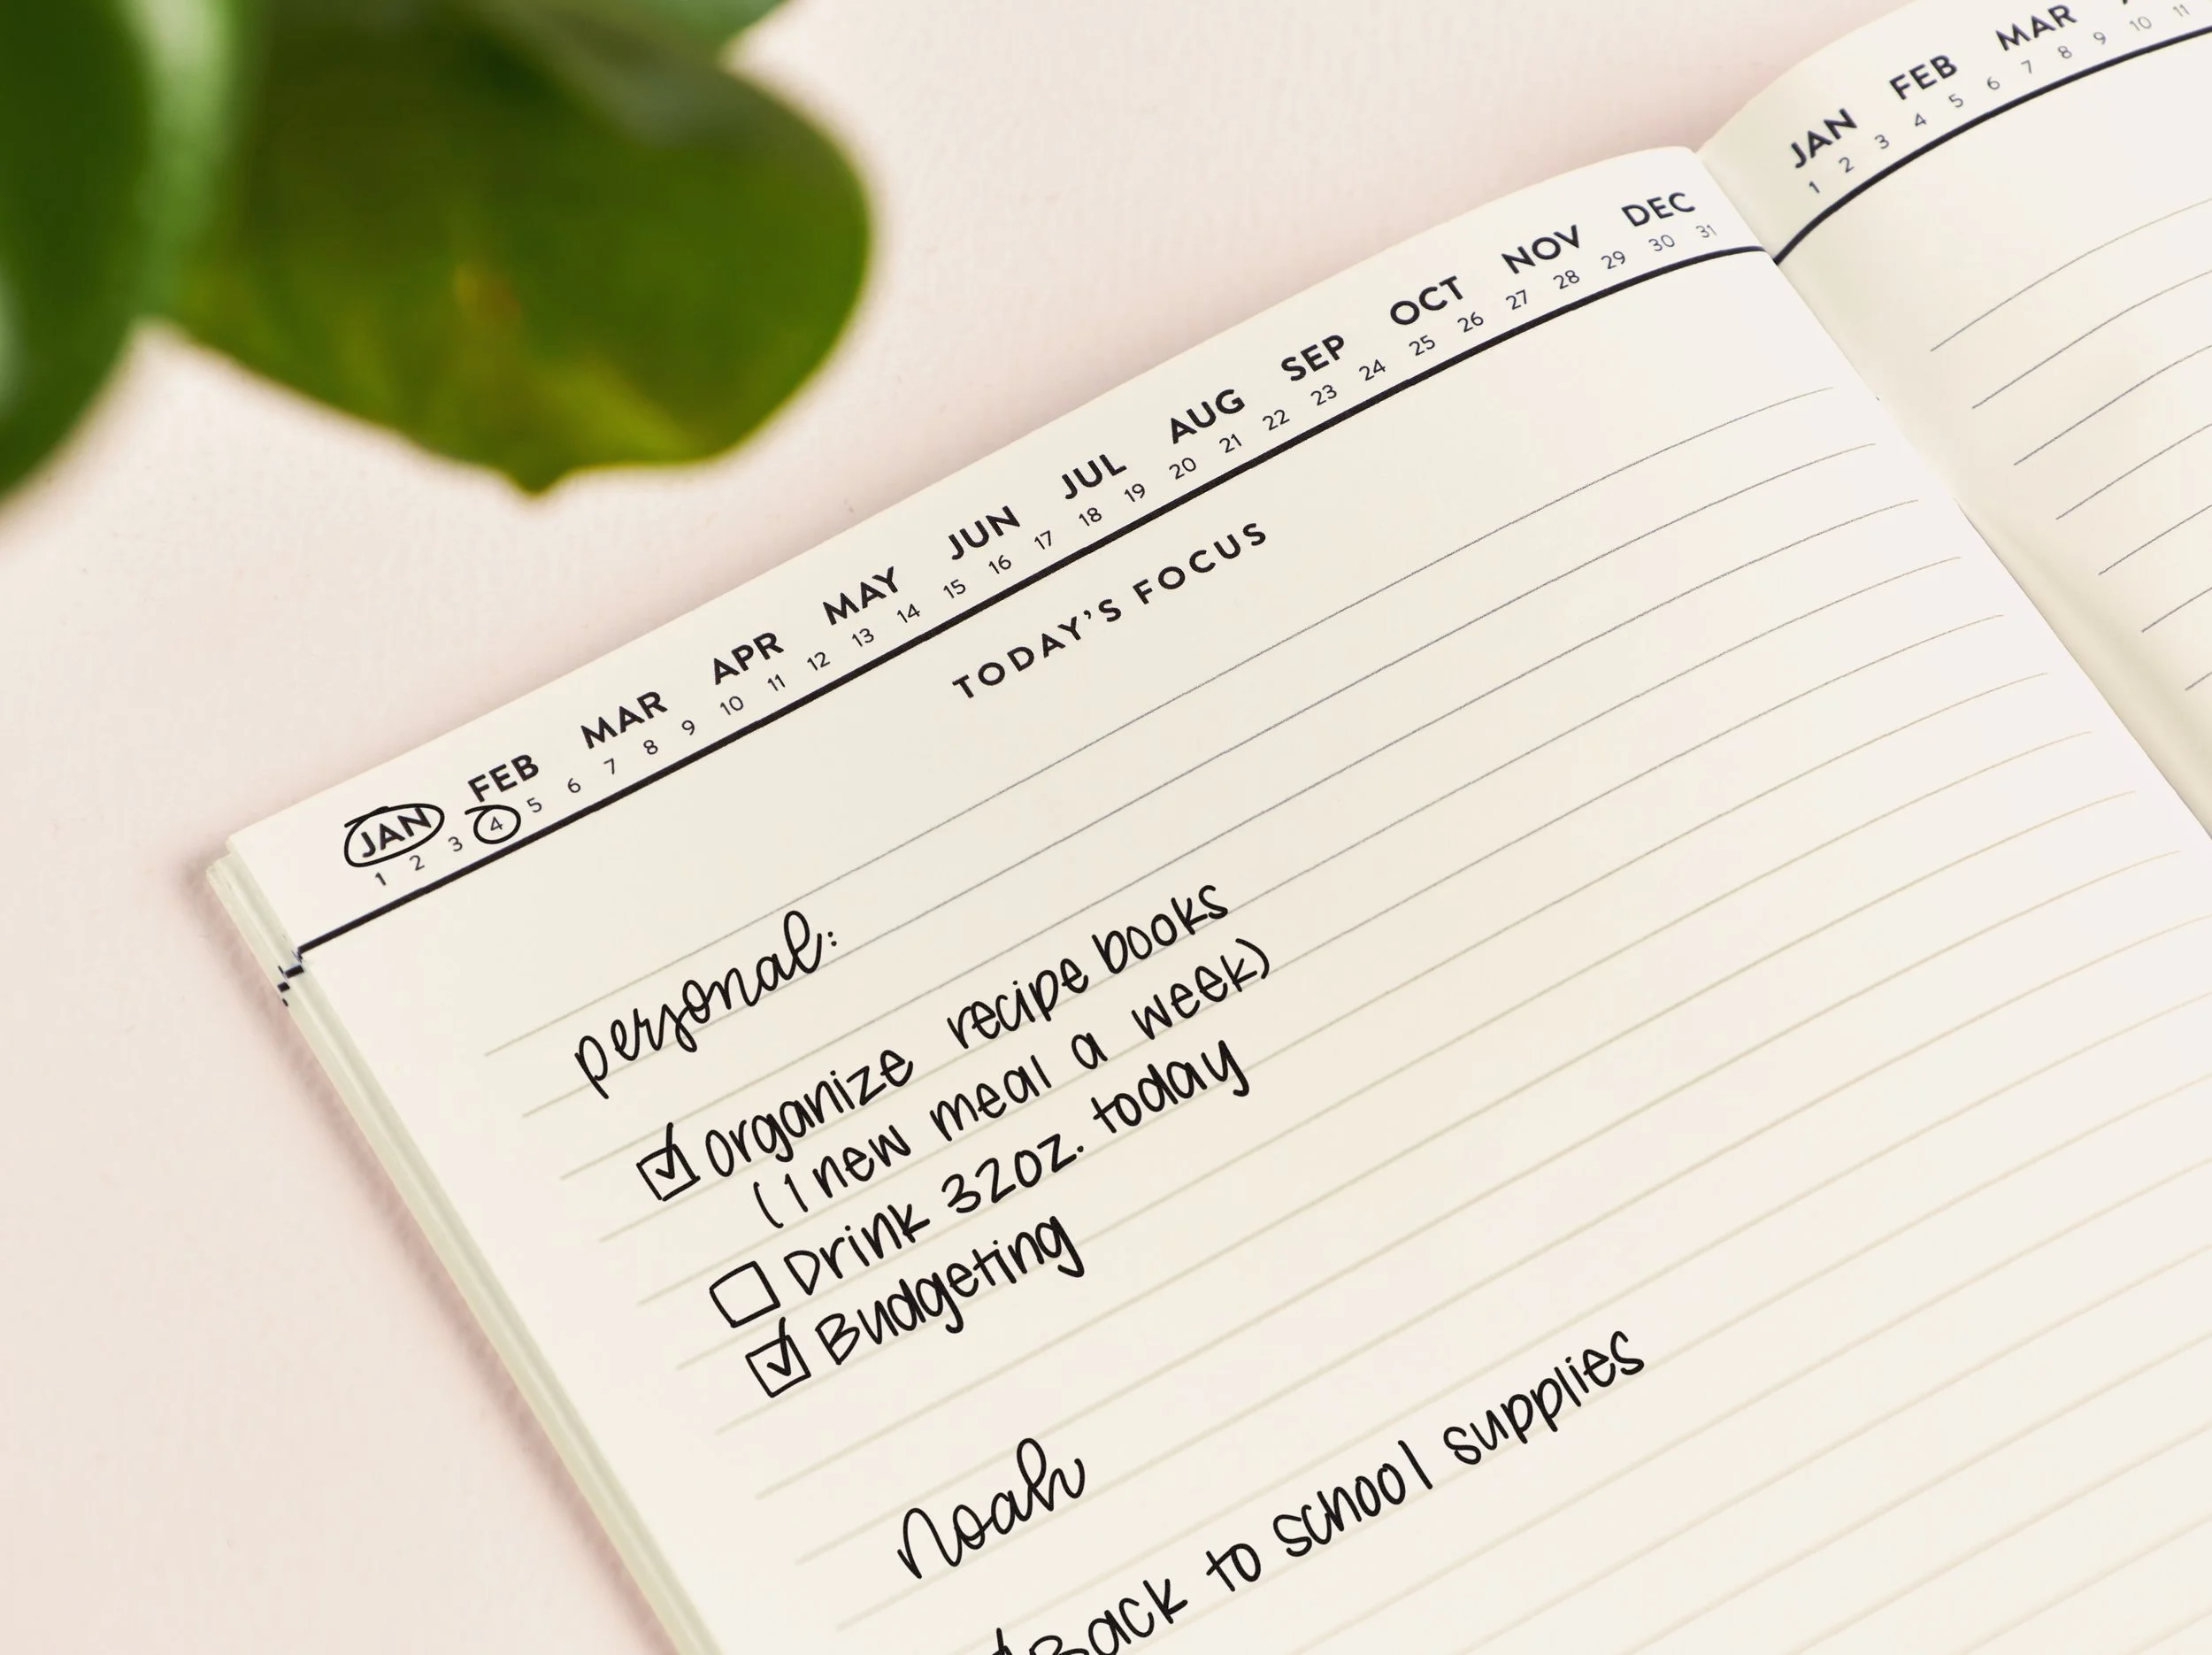 JAN FEB MAR APR MAY JUN JUL AUG SEP OCT NOV DEC
1 2 3 4 5 6 7 8 9 10 11 12 13 14 15 16 17 18 19 20 21 22 23 24 25 26 27 28 29 30 31
TODAY'S FOCUS
personal:
Organize recipe books
(1 new meal a week)
Drink 32oz. today
Budgeting
Noah
Back to school supplies
JAN FEB MAR
1 2 3 4 5 6 7 8 9 10 11